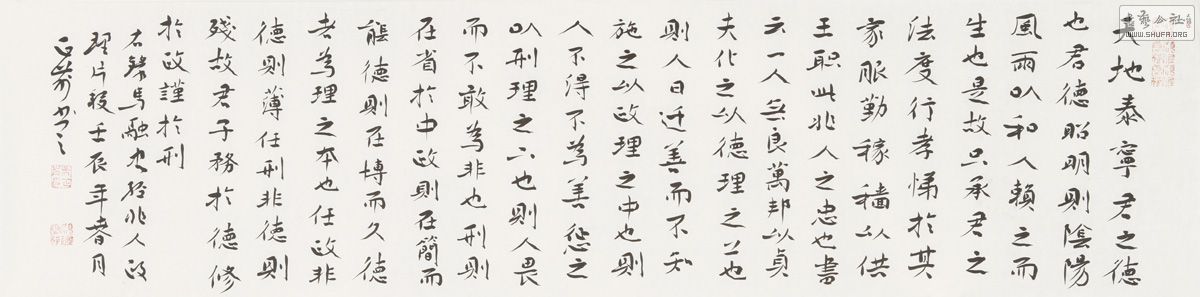 天地泰寧君之德
也君德昭明則陰陽
風雨以和人賴之而
生也是故只承君之
法度行孝悌於其
家服勤稼穡以供
王職此兆人之忠也書
云一人無良萬邦以貞
夫化之以德理之上也
則人日迁善而不知
施之以政理之中也則
人不得不為善懲之
以刑理之下也則人畏
而不敢為非也刑則
在省於中政則在簡而
能德則在博而久德
者為理之本也任政非
德則薄任刑非德則
殘故君子務於德修
於政謹於刑
右錄馬融忠經兆人政
理片段壬辰年春月
WWW.SHUFA.ORG